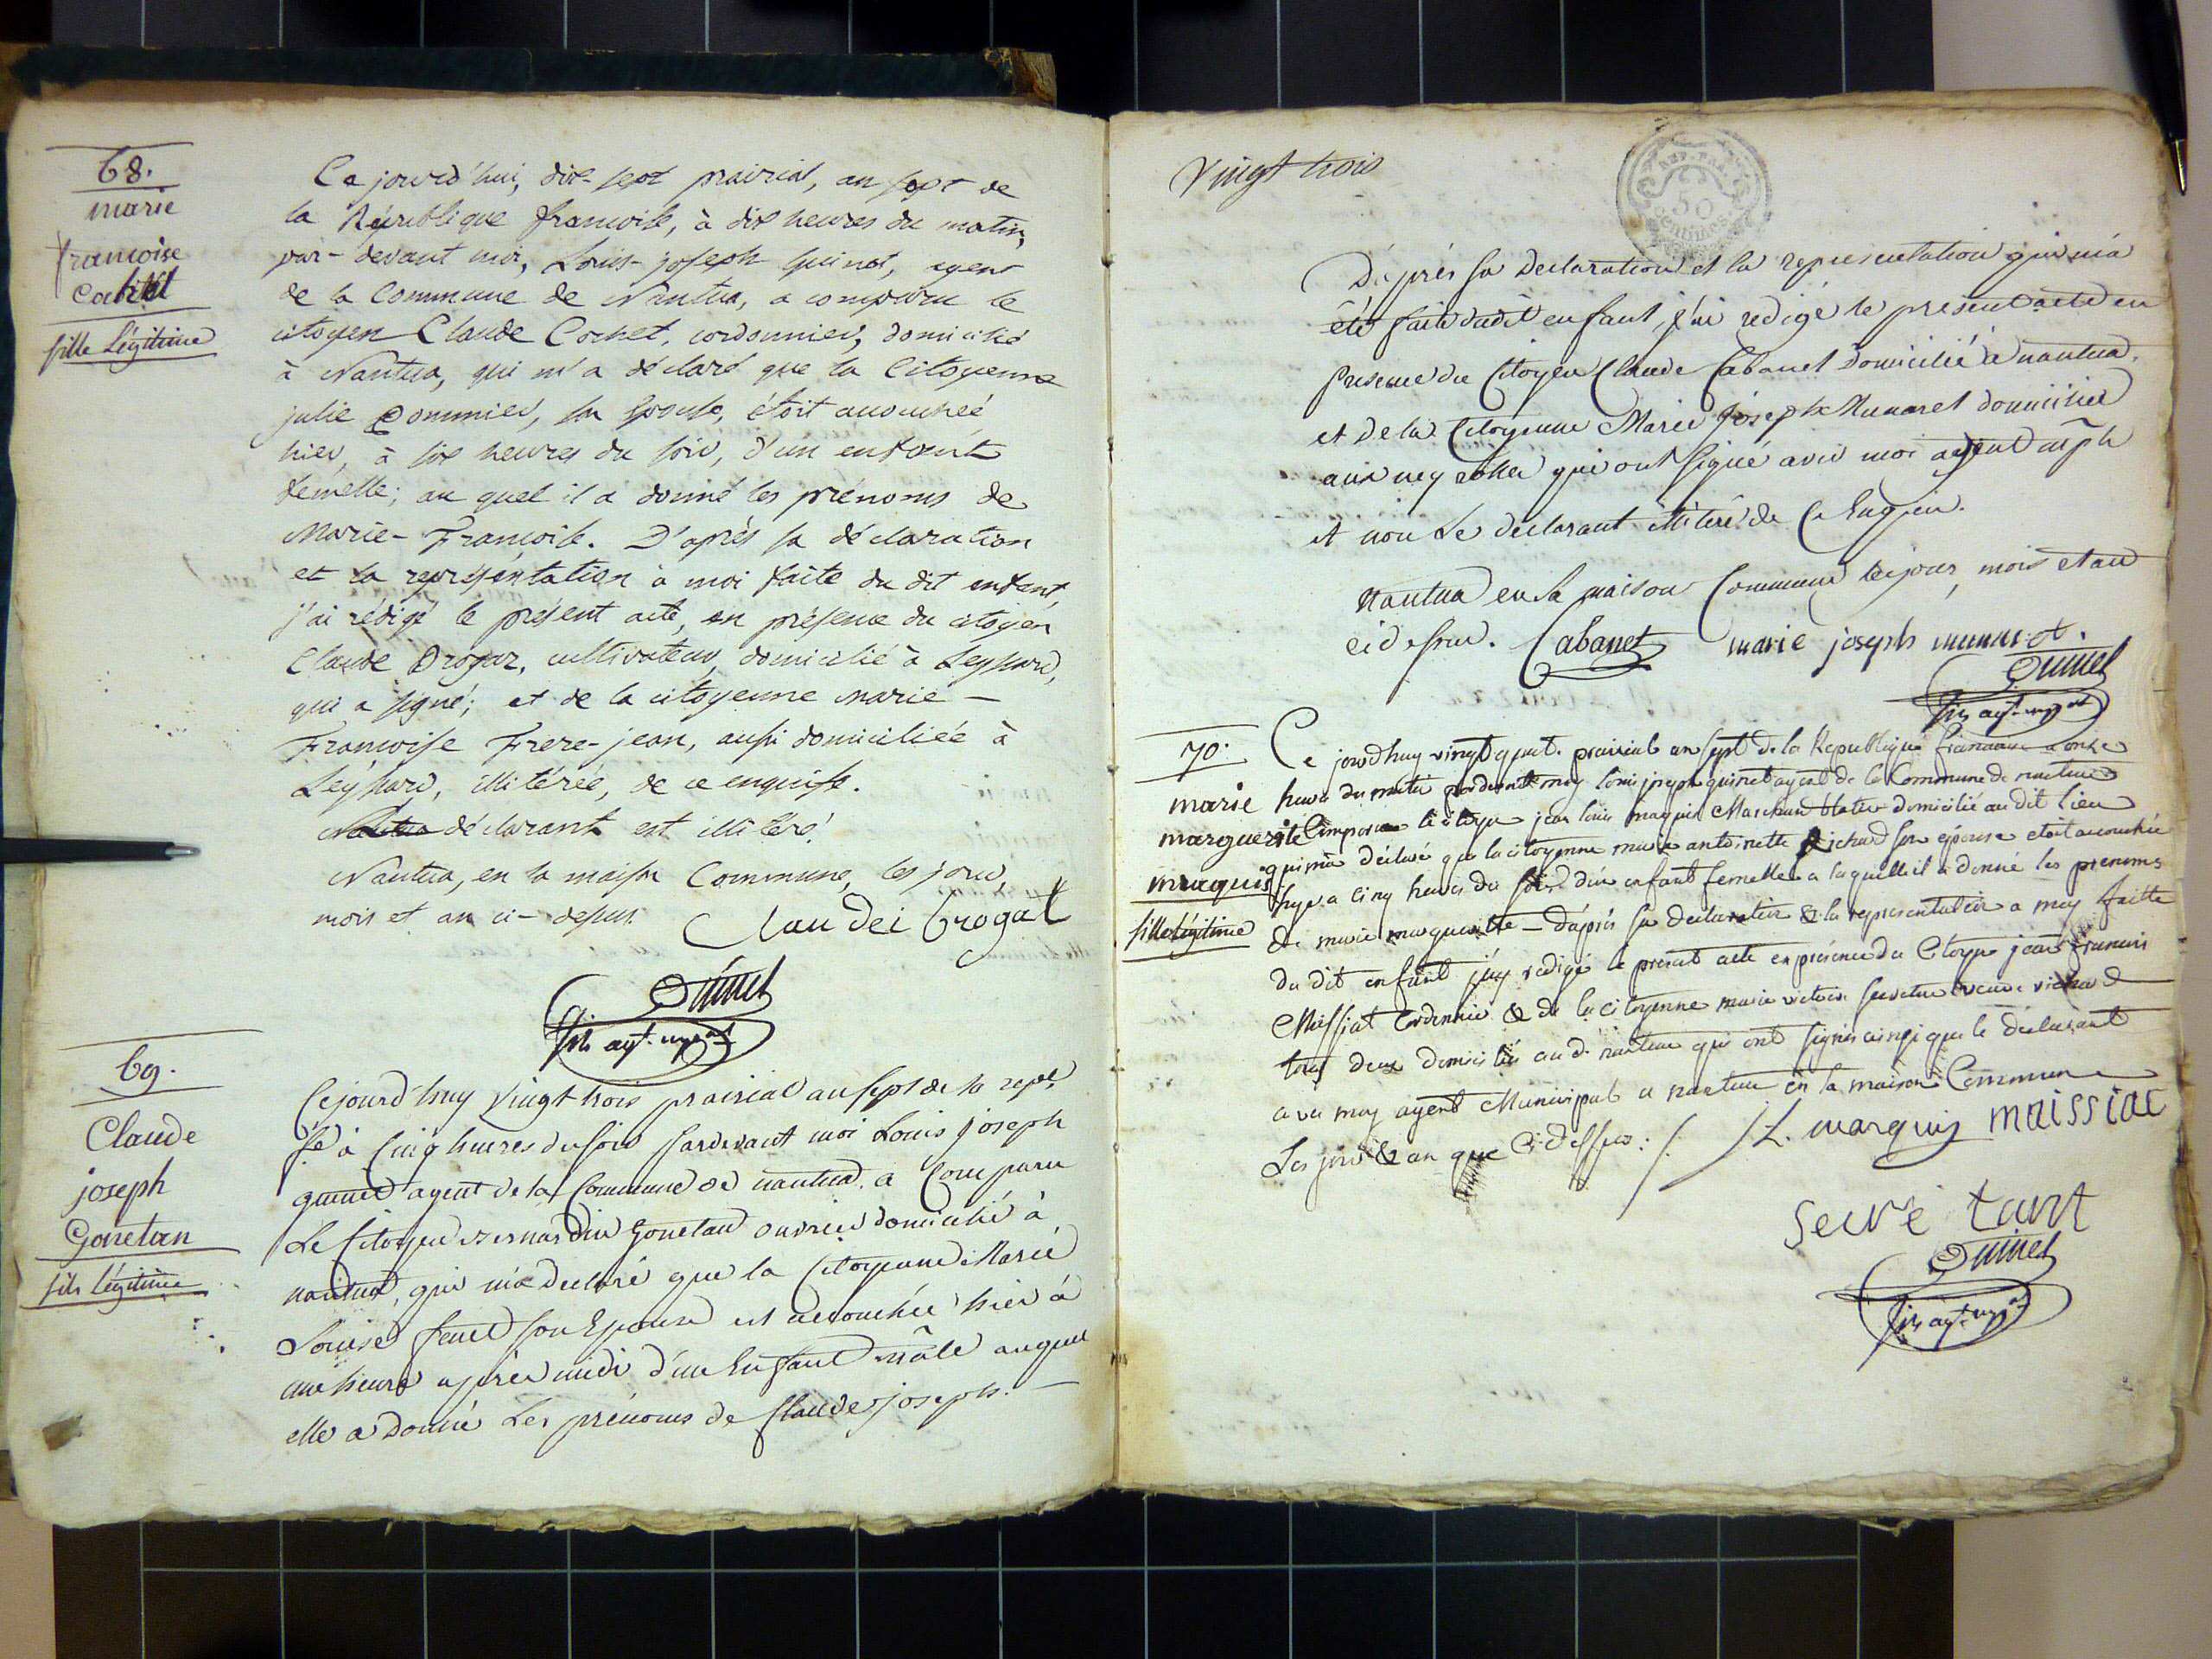 68.
marie
françoise
fille Légitime
Ce jourd'hui, dix-sept prairial, an sept de
la République françoise, à dix heures du matin,
par-devant moi, Louis-joseph Quinet, agent
de la Commune de Nantua, a comparu le
citoyen Claude Cochet, cordonnier, domicilié
à Nantua, qui m'a déclaré que la Citoyenne
julie Pommier, sa Epouse, étoit accouchée
hier, à six heures du soir, d'un enfant
femelle; au quel il a donné les prénoms de
Marie-Françoise. D'après sa déclaration
et la représentation à moi faite du dit enfant,
j'ai rédigé le présent acte, en présence du citoyen
Claude Brogat, cultivateur, domicilié à Leyssard,
qui a signé; et de la citoyenne Marie-
Françoise Frere-jean, aussi domiciliée à
Leyssard, illitérée, de ce enquise.
déclarant est illitéré.
Nantua, en la maison Commune, les jour,
mois et an ci-dessus
Claudei brogat
Quinet
fils agt. mpal
69.
Claude
joseph
Gonetan
fils Légitime
Cejourd'huy vingt trois prairial an sept de la repe.
fse à Cinq heures du soir pardevant moi Louis joseph
quinet agent de la Commune de nantua. a Comparu
Le Citoyen Bernardin Gonetan ouvrier domicilié à
nantua, qui m'a declaré que la Citoyenne Marie
Louise son Epouse est accouchée hier à
une heure après midi d'un Enfant mâle auquel
elle a donné Les prénoms de Claude joseph.-
Vingt trois
REP. FRA.
50
centimes
D'après sa Declaration et la representation qui m'a
été faite dudit enfant, j'ai redigé le présent acte en
presence du Citoyen Claude Cabanet domicilié à nantua.
et de la Citoyenne Marie Joseph Munaret domiciliée
aux neyrolles qui ont signé avec moi agent mpl
et non Le declarant illiteré de Ce Enquis.
Nantua en la maison Commune les jour, mois et an
ci dessus. Cabanet marie joseph munaret.
Quinet
fils agt. mpal
70.
marie
marguerite
marquis
fille Légitime
Ce jourdhuy vingt quat. prairial an sept de la Republique francaise a onze
heures du matin pardevant moy Louis joseph quinet agent de la Commune de nantua
a Comparu le citoyen jean louis marquis Marchand domicilié au dit lieu
qui m'a déclaré que la citoyenne marie antoinette Richard son épouse etoit accouchée
hyer a cinq heures du soir d'un enfant femelle a laquelle il a donné les prenoms
de marie marguerite - D'après sa declaration & la representation a moy faitte
du dit enfant j'ay redigé le present acte en présence du Citoyen jean francois
Maissiat Cordonnier & de la citoyenne marie victoire secretan veuve richard
tous deux domiciliés au d. nantua qui ont signés ainsi que le déclarant
avec moy agent Municipal a nantua en la maison Commune
Les jour & an que Ci dessus ./.
J L. marquis maissiat
secretant
Quinet
fils agt. mpal